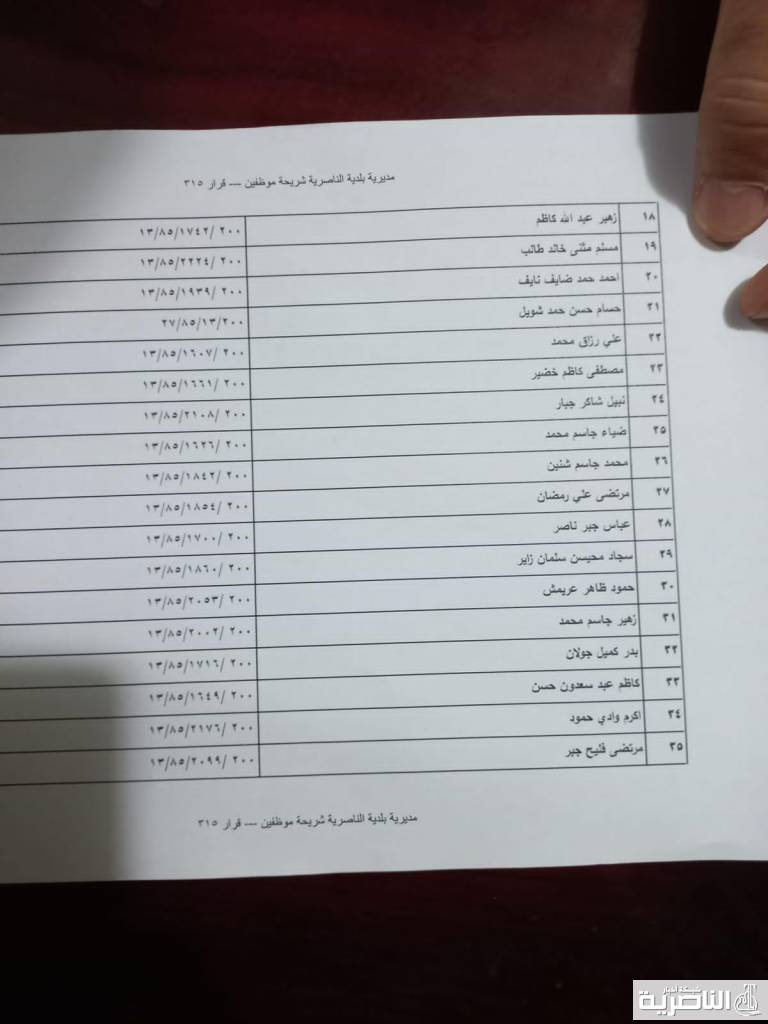 مديرية بلدية الناصرية شريحة موظفين — قرار ٣١٥
١٨ زهير عبد الله كاظم ١٣/٨٥/١٧٤٢/ ٢٠٠
١٩ مسلم مثنى خالد طالب ١٣/٨٥/٢٢٢٤/ ٢٠٠
٢٠ احمد حمد ضايف نايف ١٣/٨٥/١٩٣٩/ ٢٠٠
٢١ حسام حسن حمد شويل ٢٧/٨٥/١٣/٢٠٠
٢٢ علي رزاق محمد ١٣/٨٥/١٦٠٧/ ٢٠٠
٢٣ مصطفى كاظم خضير ١٣/٨٥/١٦٦١/ ٢٠٠
٢٤ نبيل شاكر جبار ١٣/٨٥/٢١٠٨/ ٢٠٠
٢٥ ضياء جاسم محمد ١٣/٨٥/١٦٢٦/ ٢٠٠
٢٦ محمد جاسم شنين ١٣/٨٥/١٨٤٢/ ٢٠٠
٢٧ مرتضى علي رمضان ١٣/٨٥/١٨٥٤/ ٢٠٠
٢٨ عباس جبر ناصر ١٣/٨٥/١٧٠٠/ ٢٠٠
٢٩ سجاد محيسن سلمان زاير ١٣/٨٥/١٨٦٠/ ٢٠٠
٣٠ حمود ظاهر عريمش ١٣/٨٥/٢٠٥٣/ ٢٠٠
٣١ زهير جاسم محمد ١٣/٨٥/٢٠٠٢/ ٢٠٠
٣٢ بدر كميل جولان ١٣/٨٥/١٧١٦/ ٢٠٠
٣٣ كاظم عبد سعدون حسن ١٣/٨٥/١٦٤٩/ ٢٠٠
٣٤ اكرم وادي حمود ١٣/٨٥/٢١٧٦/ ٢٠٠
٣٥ مرتضى فليح جبر ١٣/٨٥/٢٠٩٩/ ٢٠٠
مديرية بلدية الناصرية شريحة موظفين — قرار ٣١٥
شبكة أخبار
الناصرية